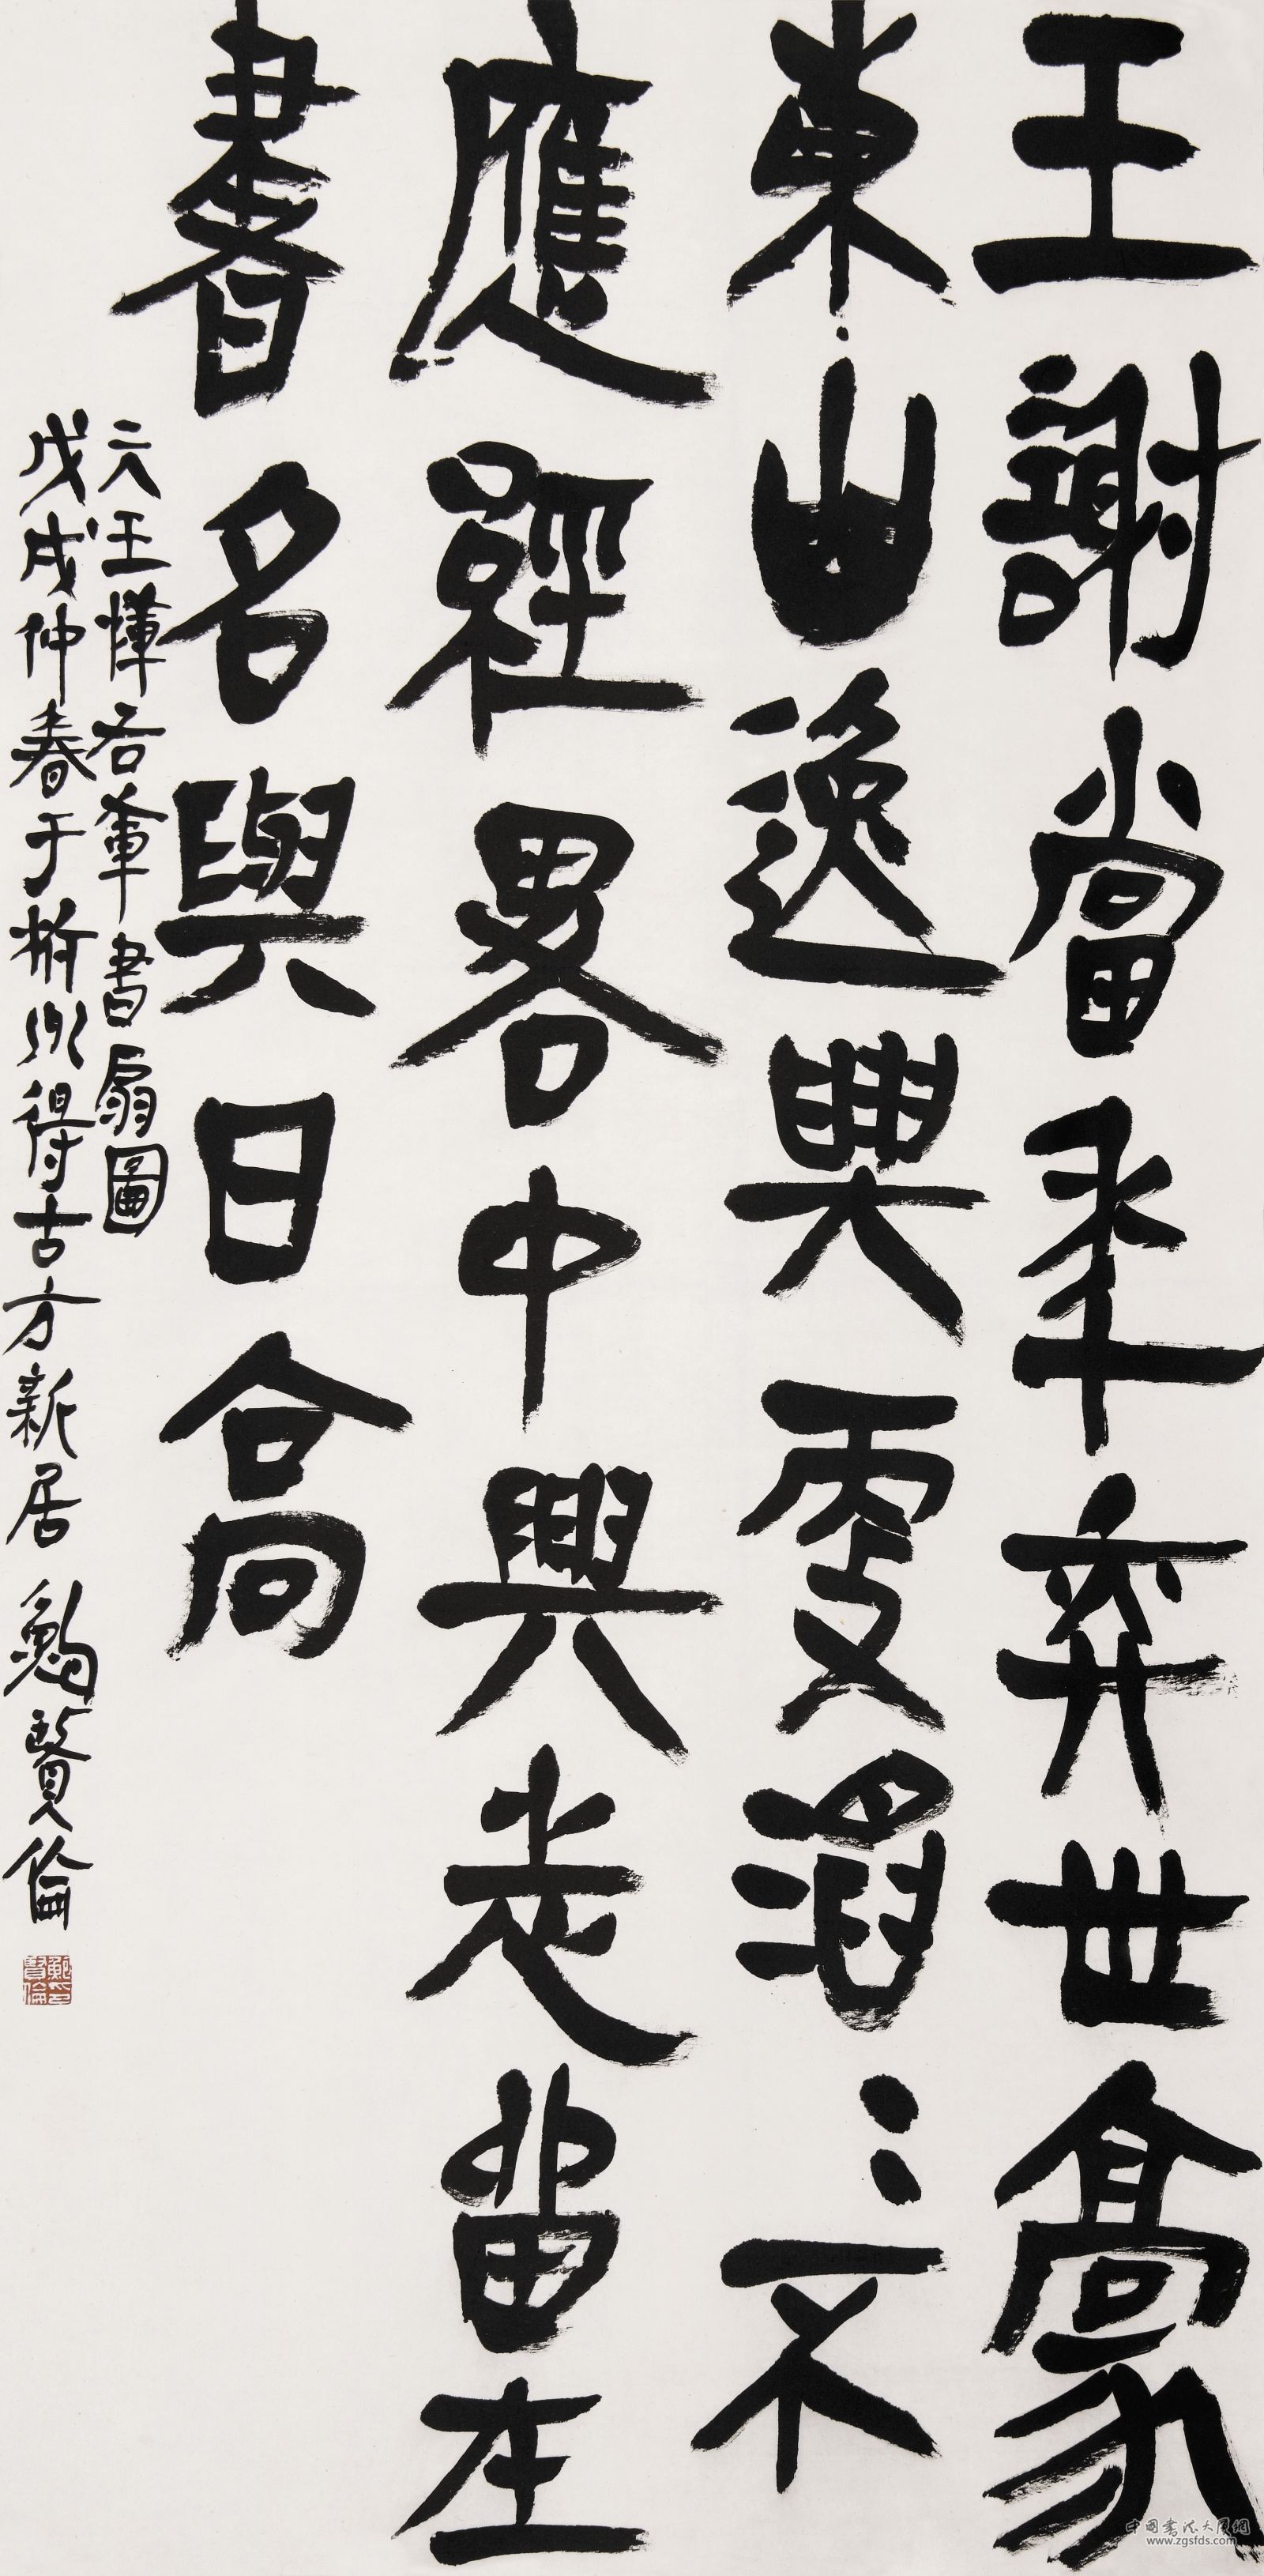 王謝當年奕世豪
東山逸興更滔〻不
應經畧中興志留在
書名與日高
元王惲右軍書扇圖
戊戌仲春于州得古方新居 鮑賢倫
中國書法大風網
www.zgsfds.com